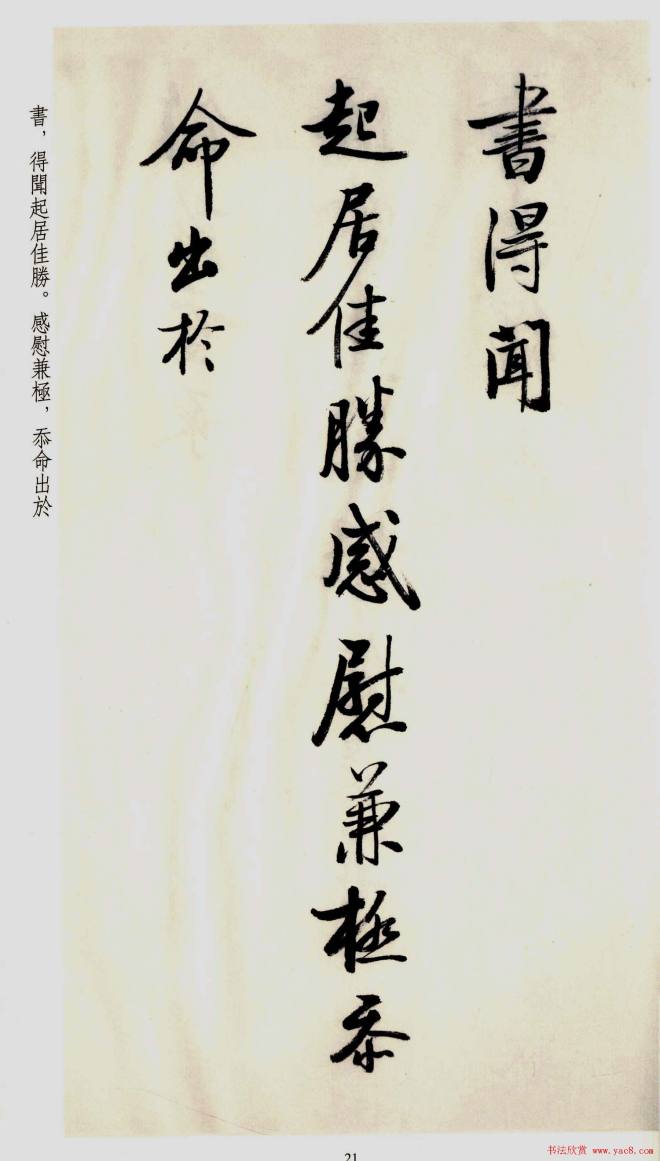 書得聞
起居佳勝感慰兼極忝
命出於
書，得聞起居佳勝。感慰兼極，忝命出於
21
书法欣赏 www.yac8.com